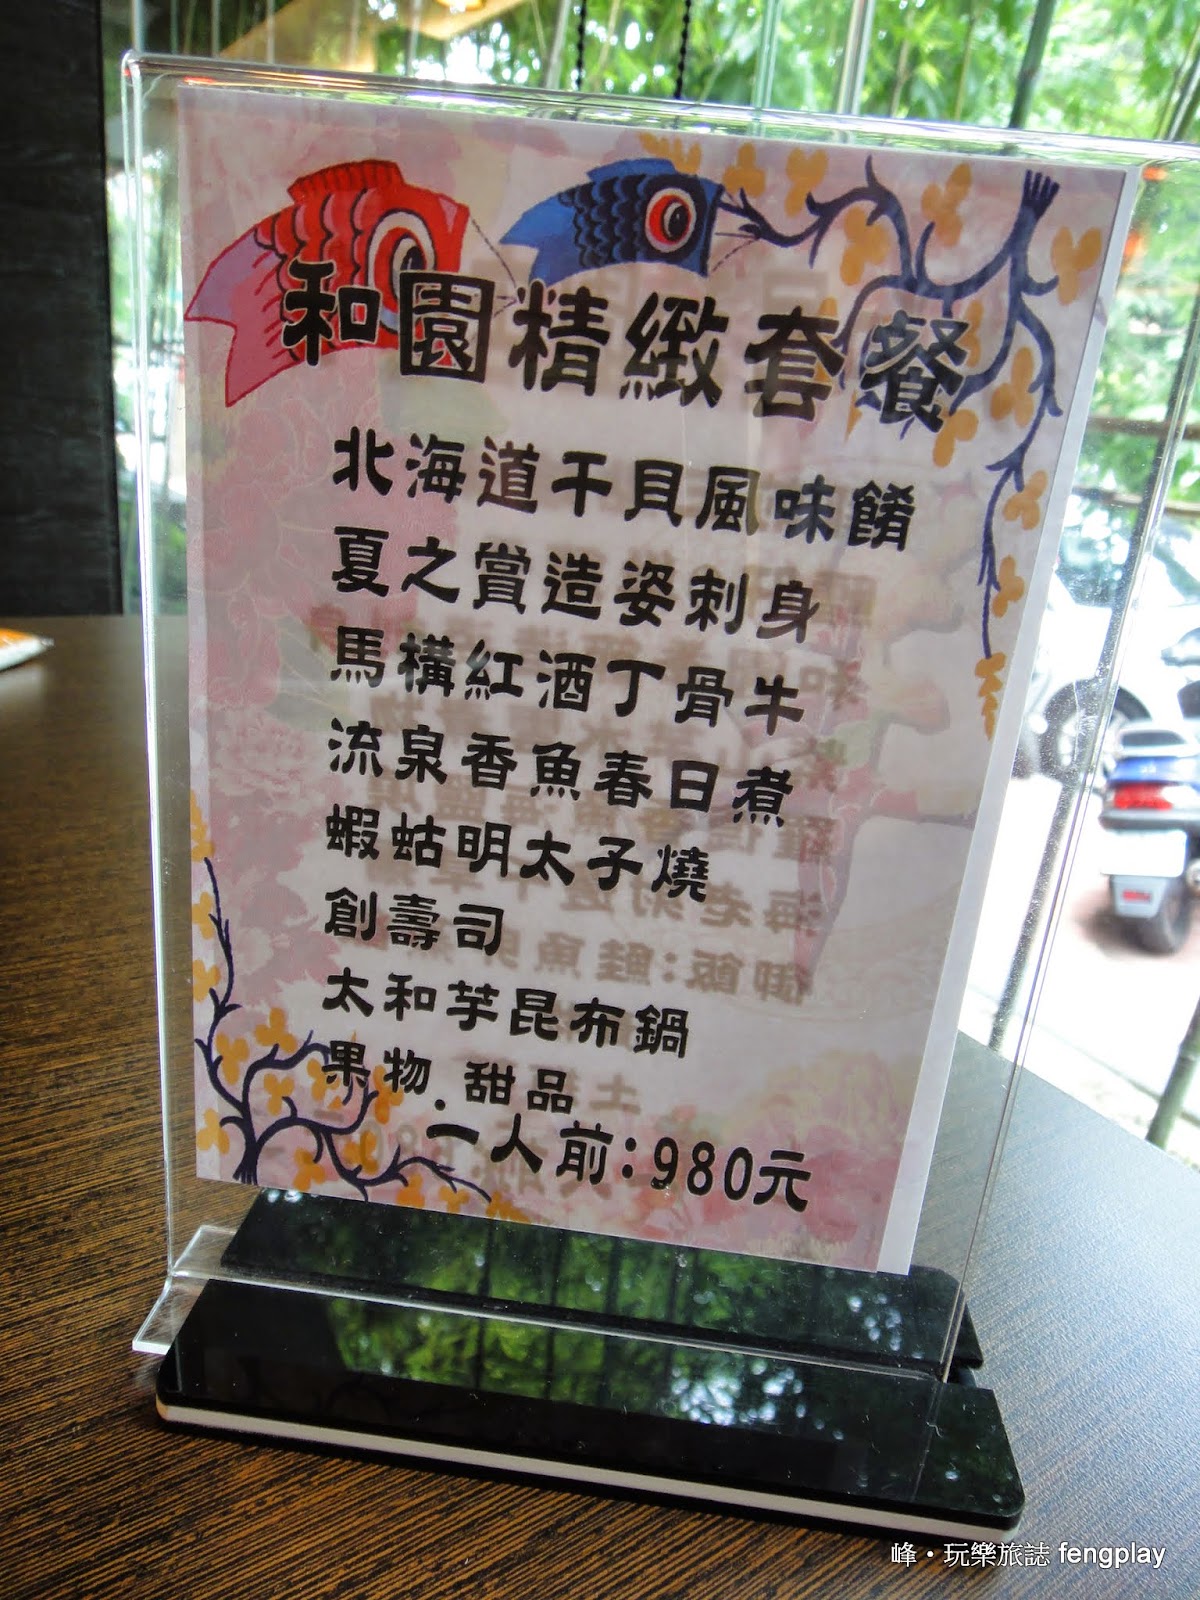 和園精緻套餐
北海道干貝風味餚
夏之賞造姿刺身
馬構紅酒丁骨牛
流泉香魚春日煮
蝦蛄明太子燒
創壽司
太和芋昆布鍋
果物.甜品
一人前:980元
峰‧玩樂旅誌 fengplay